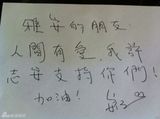 雅安的朋友
人間有愛，我許
志安支持你們！
加油！